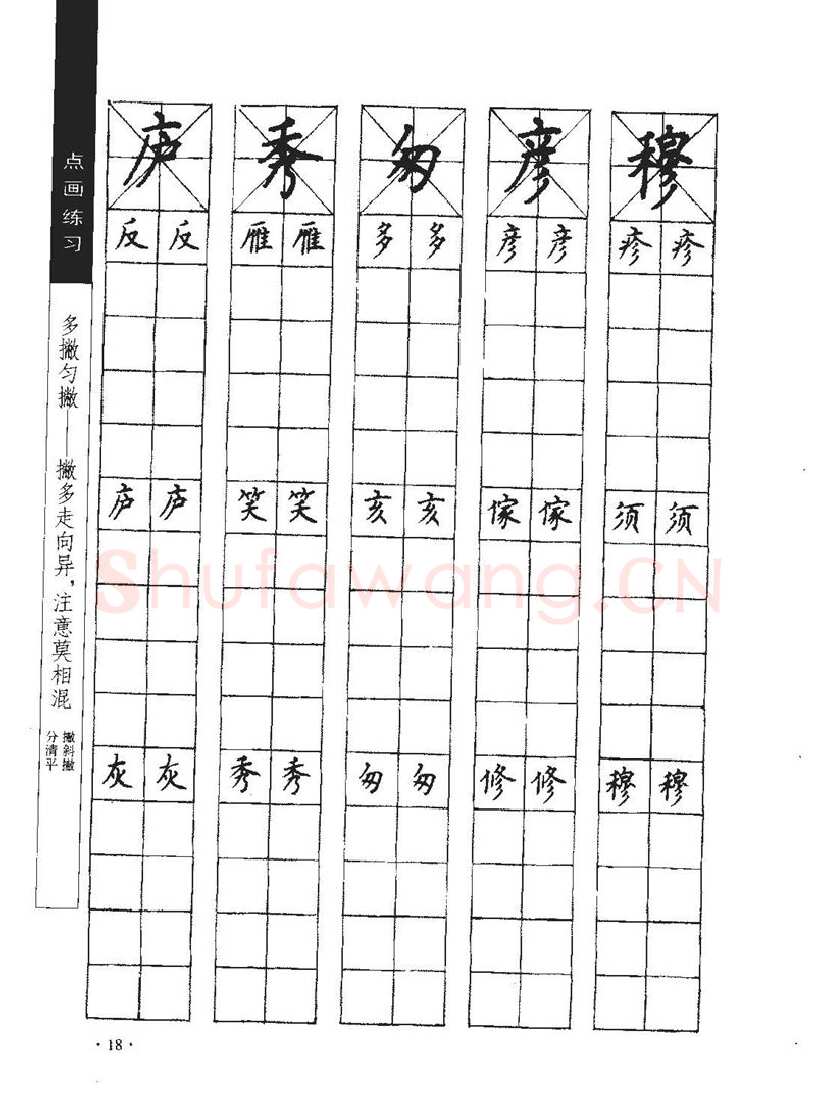 点画练习
多撇匀撇——撇多走向异，注意莫相混
分清平
撇斜撇
庐 秀 匆 彦 穆
反 反 雁 雁 多 多 彦 彦 疹 疹
庐 庐 笑 笑 亥 亥 傢 傢 须 须
灰 灰 秀 秀 匆 匆 修 修 穆 穆
Shufawang.CN
·18·